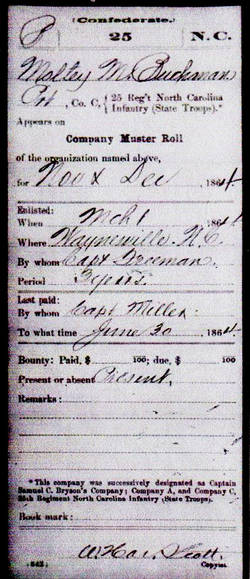 (Confederate.)
B 25 N.C.
Moltey M. Buchman
Pvt, Co. C, { 25 Reg't North Carolina
Infantry (State Troops).*
Appears on
Company Muster Roll
of the organization named above,
for Nov & Dec, 1864.
Enlisted:
When Mch 1, 1864.
Where Waynesville, N.C.
By whom Capt Freeman.
Period 3 years.
Last paid:
By whom Capt Miller.
To what time June 30, 1864.
Bounty: Paid, $ 100; due, $ 100
Present or absent Present.
Remarks:
*This company was successively designated as Captain
Samuel C. Bryson's Company; Company A, and Company C,
25th Regiment North Carolina Infantry (State Troops).
Book mark:
(642) Copyist.